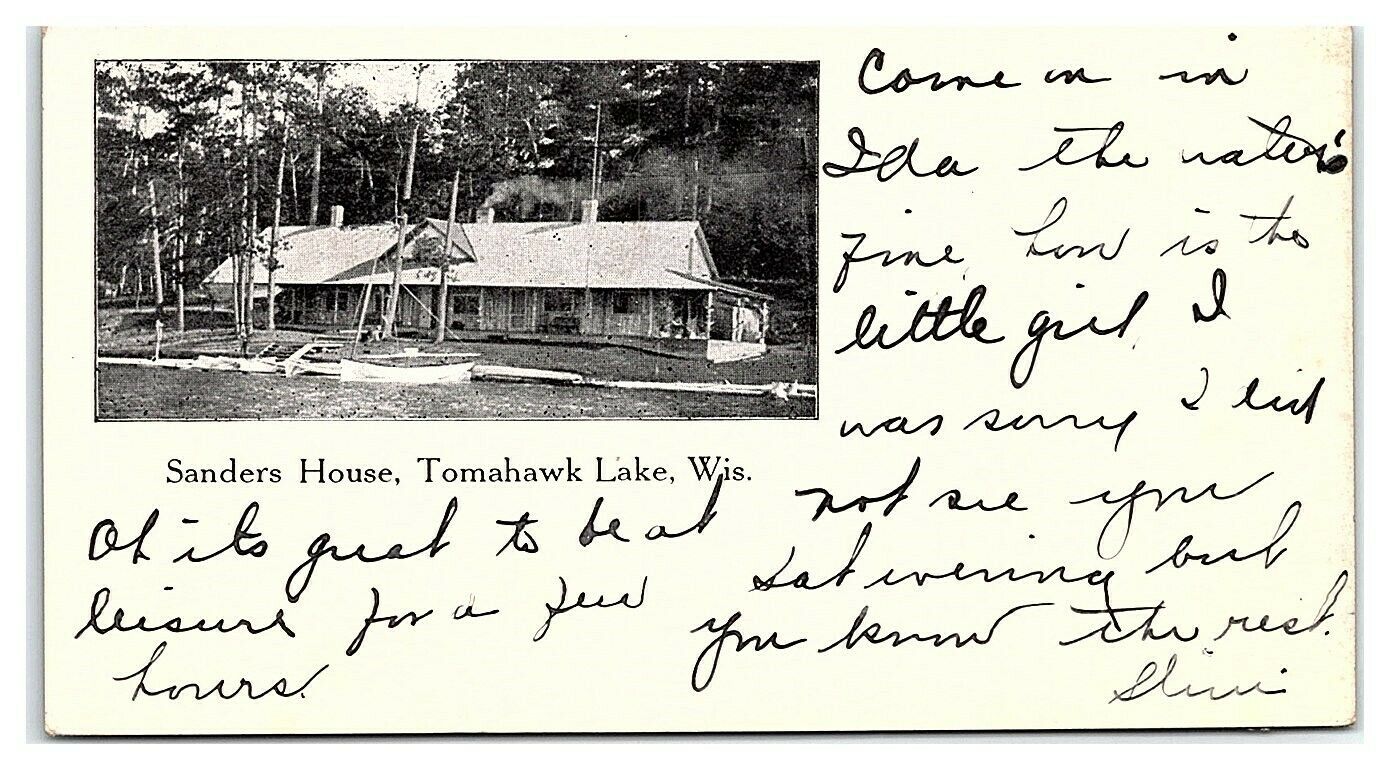 Come on in
Ida the water's
fine. how is the
little girl. I
was sorry I did
not see you
Sat evening but
you know the rest.
Slim
Sanders House, Tomahawk Lake, Wis.
Oh its great to be at
leisure for a few
hours.